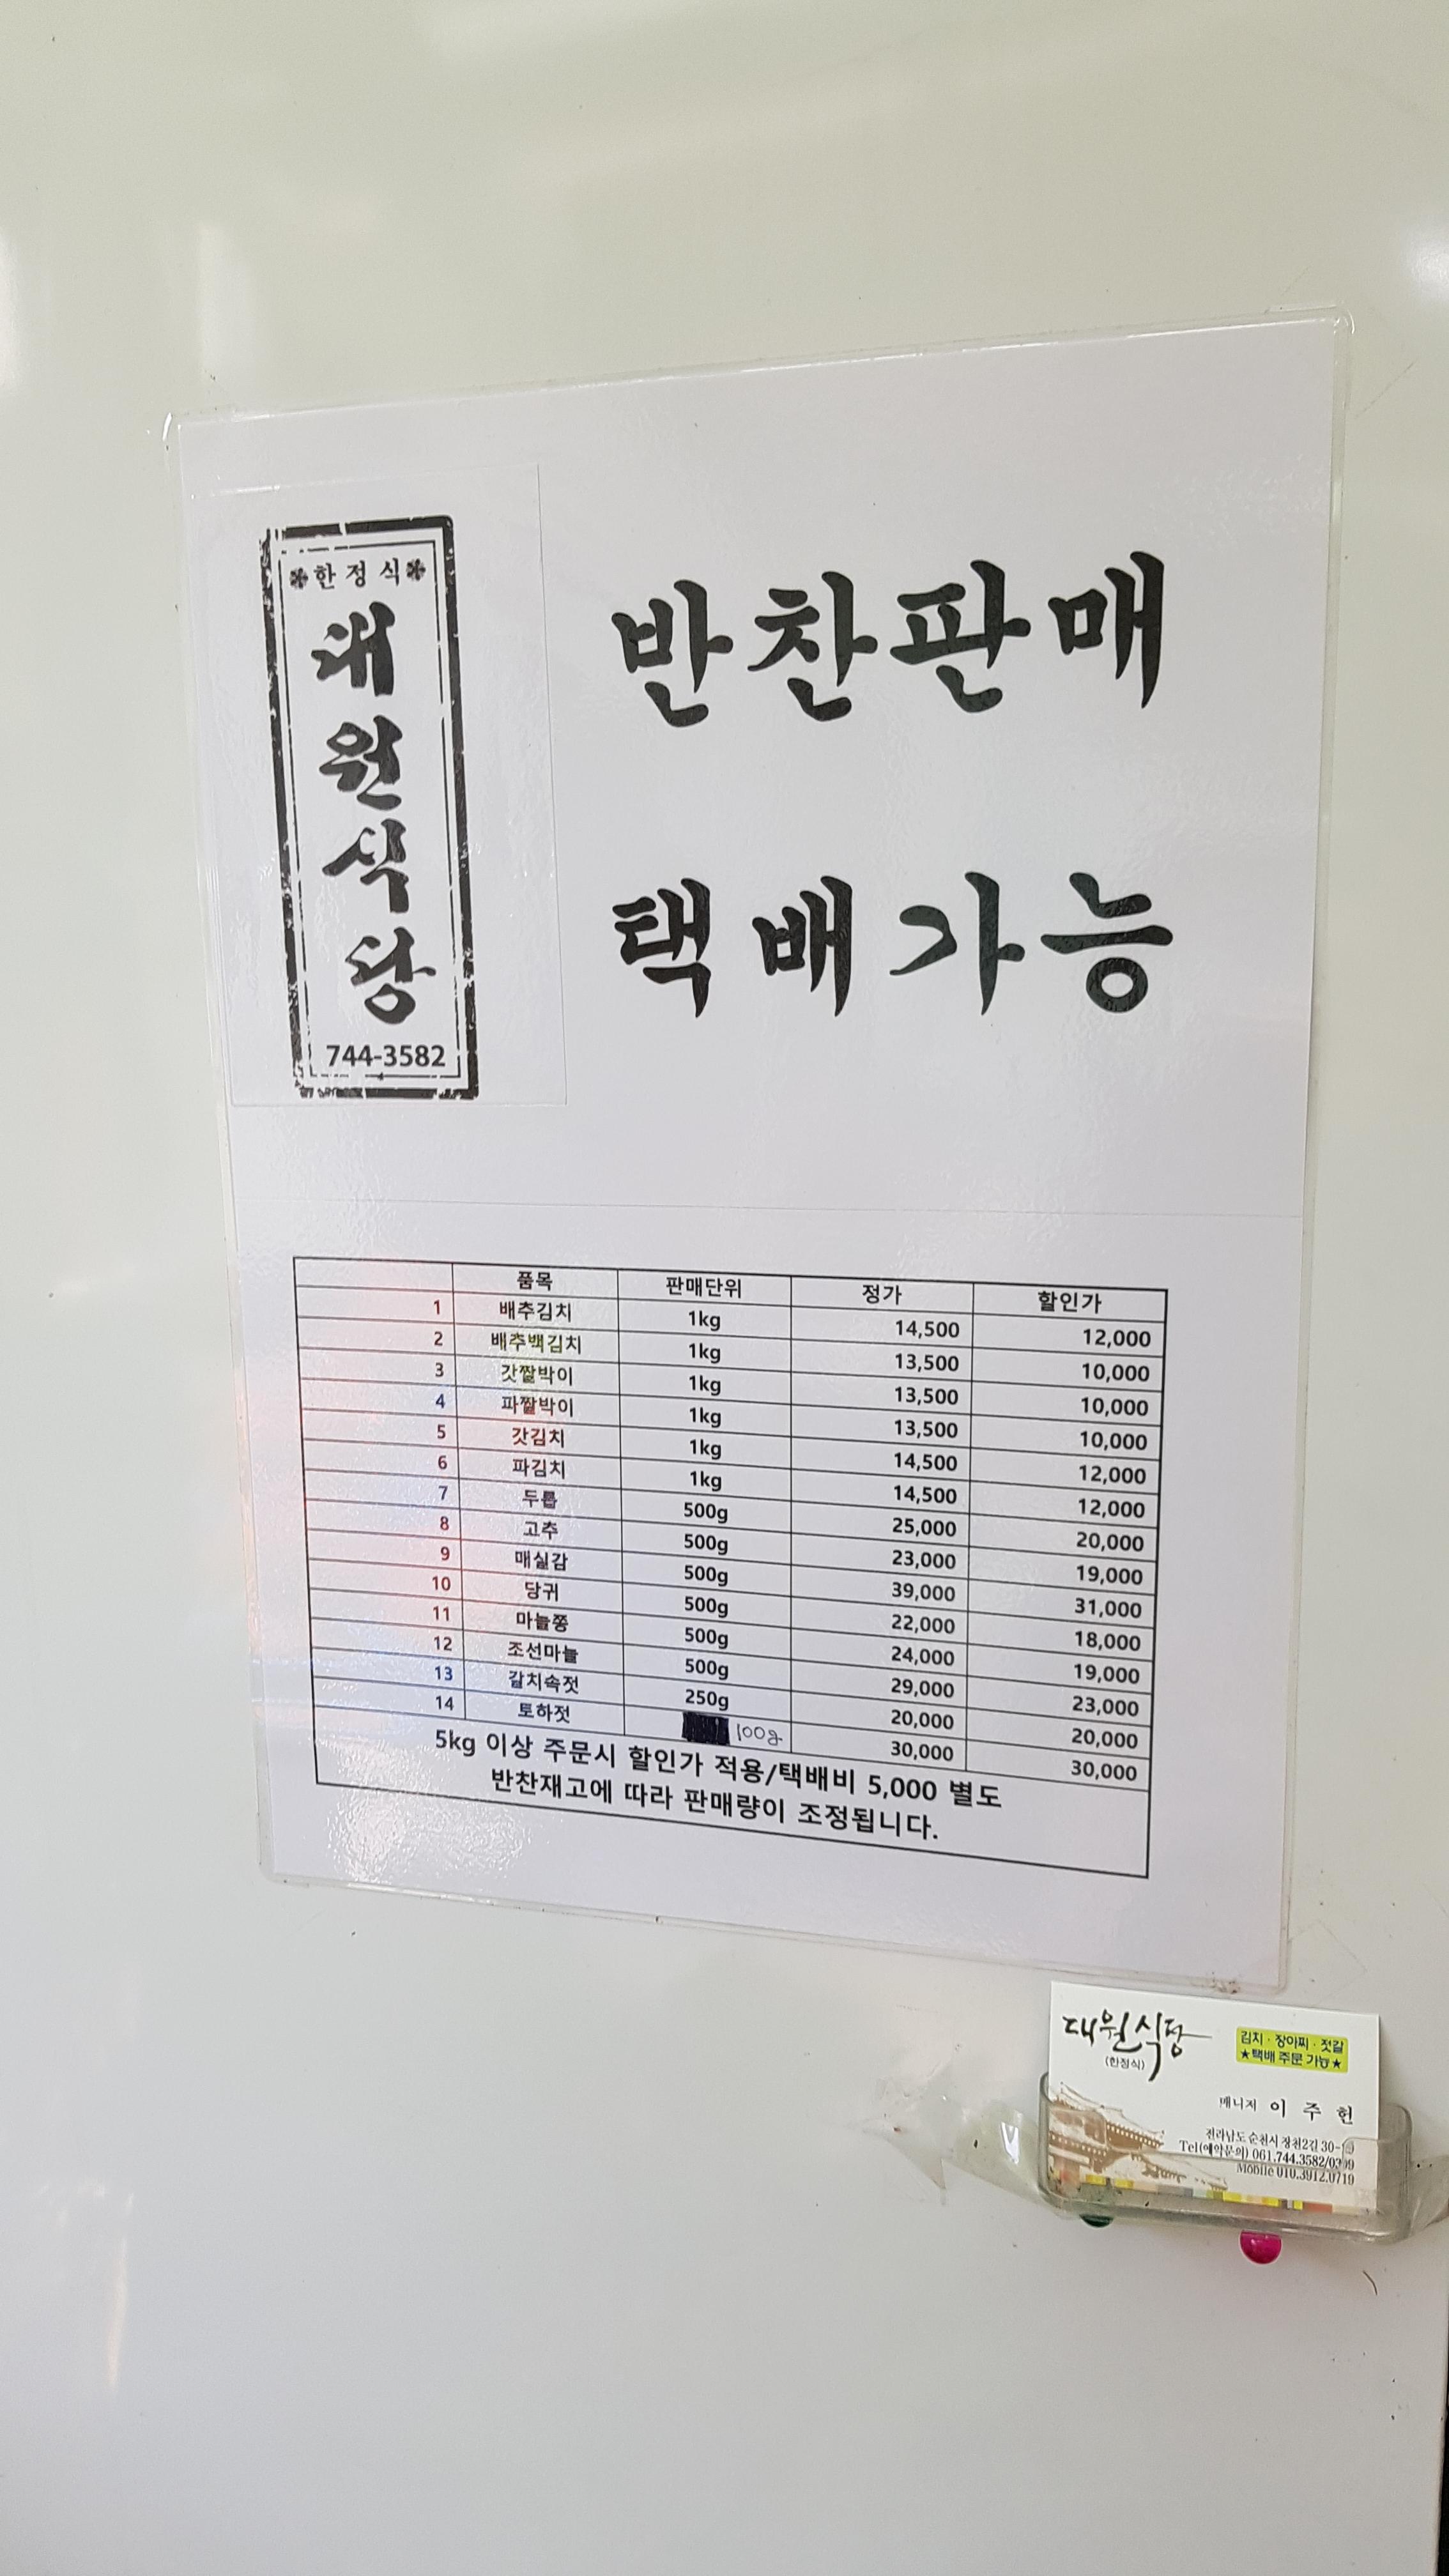 한정식
대원식당
744-3582
반찬판매
택배가능
품목 판매단위 정가 할인가
1 배추김치 1kg 14,500 12,000
2 배추백김치 1kg 13,500 10,000
3 갓짤박이 1kg 13,500 10,000
4 파짤박이 1kg 13,500 10,000
5 갓김치 1kg 14,500 12,000
6 파김치 1kg 14,500 12,000
7 두릅 500g 25,000 20,000
8 고추 500g 23,000 19,000
9 매실감 500g 39,000 31,000
10 당귀 500g 22,000 18,000
11 마늘쫑 500g 24,000 19,000
12 조선마늘 500g 29,000 23,000
13 갈치속젓 250g 20,000 20,000
14 토하젓 100g 30,000 30,000
5kg 이상 주문시 할인가 적용/택배비 5,000 별도
반찬재고에 따라 판매량이 조정됩니다.
대원식당
(한정식)
김치 · 장아찌 · 젓갈
★택배 주문 가능★
매니저 이 주 헌
전라남도 순천시 장천2길
Tel(예약문의) 061.744.3582
Mobile 010.3912.0719